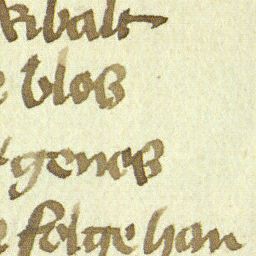 kbalt
e blos
t genes
e folge han